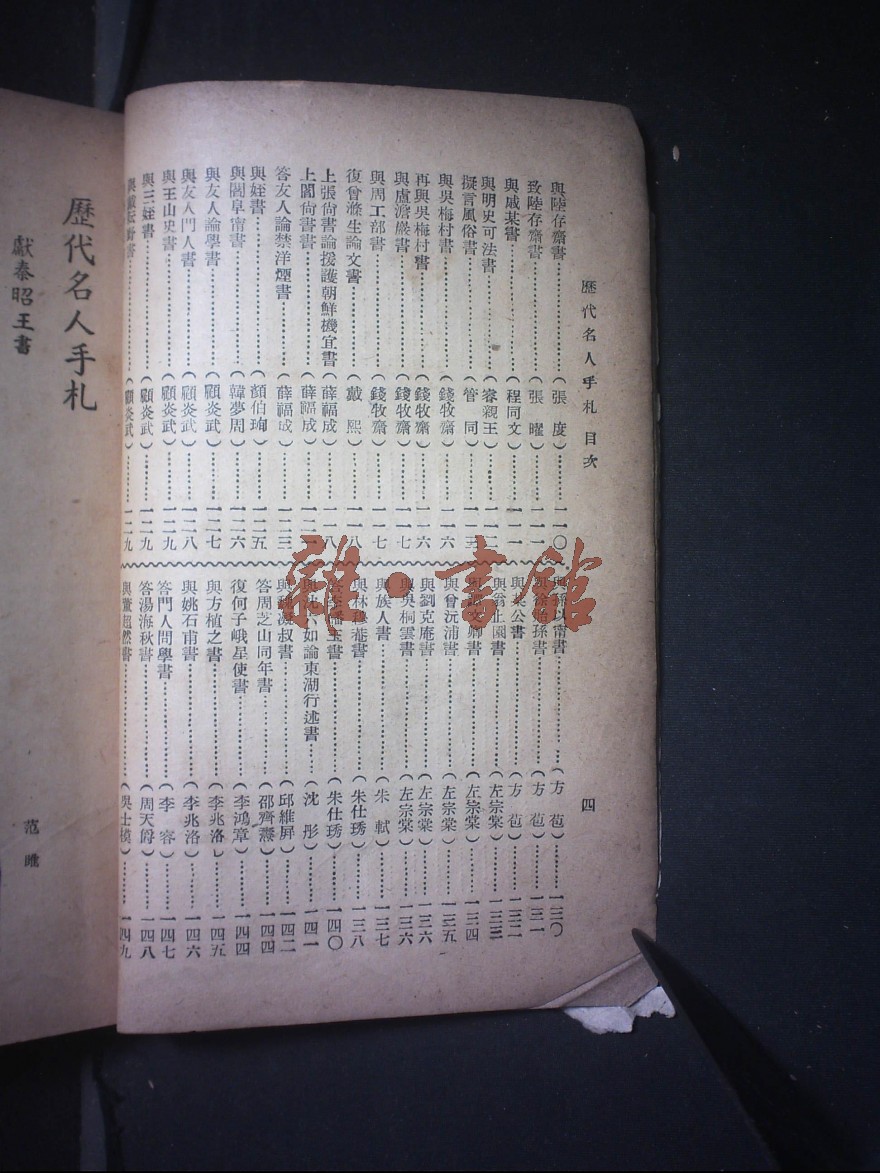 歷代名人手札 目次 四
與陸存齋書……(張 度)……一一〇
致陸存齋書……(張 曜)……一一一
與戚某書……(程同文)……一一一
與明史可法書……(睿親王)……一一二
擬言風俗書……(管 同)……一一三
與吳梅村書……(錢牧齋)……一一六
再與吳梅村書……(錢牧齋)……一一六
與盧澹巖書……(錢牧齋)……一一七
與周工部書……(錢牧齋)……一一七
復曾滌生論文書……(戴 熙)……一一八
上張尙書論援護朝鮮機宜書……(薛福成)……一一八
上閻尙書書……(薛福成)……一二一
答友人論禁洋煙書……(薛福成)……一二三
與姪書……(顏伯珣)……一二五
與閻阜甯書……(韓夢周)……一二六
與友人論學書……(顧炎武)……一二七
與友人門人書……(顧炎武)……一二八
與王山史書……(顧炎武)……一二九
與三姪書……(顧炎武)……一二九
(顧炎武)……一二九
(方 苞)……一三〇
(方 苞)……一三一
公書……(方 苞)……一三二
書……(左宗棠)……一三三
書……(左宗棠)……一三四
與曾沅浦書……(左宗棠)……一三五
與劉克庵書……(左宗棠)……一三六
與吳桐雲書……(左宗棠)……一三六
與族人書……(朱 軾)……一三七
書……(朱仕琇)……一三八
書……(朱仕琇)……一四〇
如論東湖行述書……(沈 彤)……一四一
叔書……(邱維屏)……一四二
答周芝山同年書……(邵齊燾)……一四四
復何子峨星使書……(李鴻章)……一四四
與方植之書……(李兆洛)……一四五
與姚石甫書……(李兆洛)……一四六
答門人問學書……(李 容)……一四七
答湯海秋書……(周天爵)……一四八
與董超然書……(吳士模)……一四九
歷代名人手札
獻秦昭王書
范 睢
雜·書館